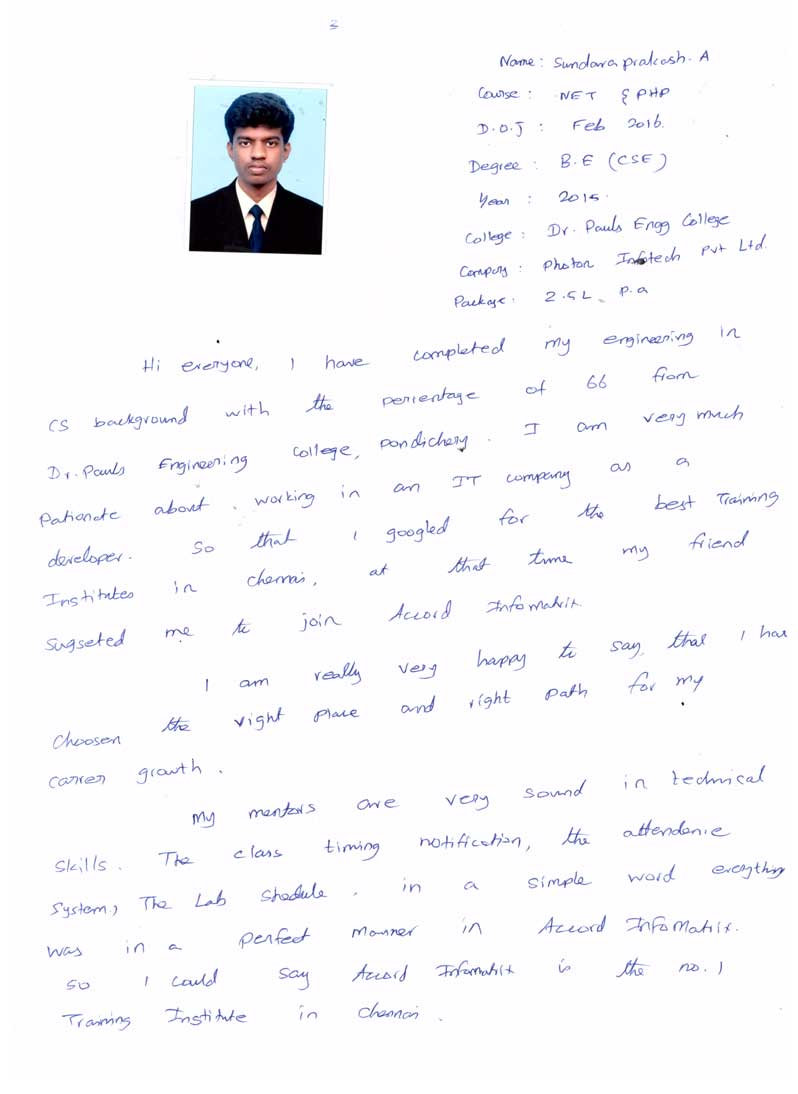 Name: Sundaraprakash. A
Course: NET & PHP
D.O.J : Feb 2016.
Degree : B.E (CSE)
Year : 2015.
College : Dr. Pauls Engg College
Company : Photon Infotech Pvt Ltd.
Package : 2.5L p.a
Hi everyone, I have completed my engineering in
CS background with the percentage of 66 from
Dr. Pauls Engineering College, Pondichery. I am very much
Pationate about working in an IT company as a
developer. So that I googled for the best Training
Institutes in chennai, at that time my friend
Sugseted me to join Accord Infomatrix.
I am really very happy to say, that I has
Choosen the right place and right path for my
carrer growth.
My mentors are very sound in technical
Skills. The class timing notification, the attendenie
System, The Lab Shedule. in a simple word everything
was in a perfect manner in Accord InfoMatrix.
So I could say Accord Infomatrix is the no.1
Training Institute in Chennai.